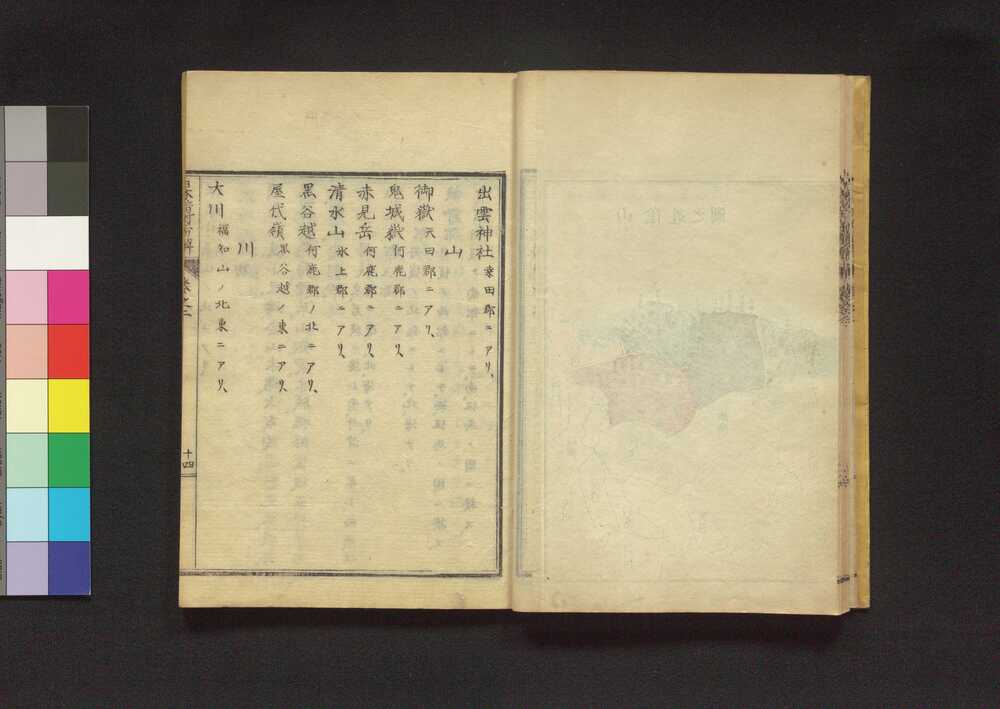 出雲神社 桒田郡ニアリ、
山
御嶽 天田郡ニアリ、
鬼城嶽 何鹿郡ニアリ、
赤見岳 何鹿郡ニアリ、
清水山 氷上郡ニアリ、
黒谷越 何鹿郡ノ北ニアリ、
屋代嶺 黒谷越ノ東ニアリ、
川
大川 福知山ノ北東ニアリ、
十四